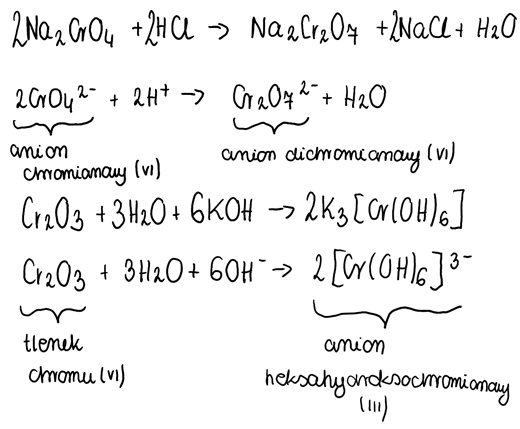 2Na₂CrO₄ + 2HCl → Na₂Cr₂O₇ + 2NaCl + H₂O
2CrO₄²⁻ + 2H⁺ → Cr₂O₇²⁻ + H₂O
anion chromianowy (VI) anion dichromianowy (VI)
Cr₂O₃ + 3H₂O + 6KOH → 2K₃[Cr(OH)₆]
Cr₂O₃ + 3H₂O + 6OH⁻ → 2[Cr(OH)₆]³⁻
tlenek chromu (VI) anion heksahydroksochromianowy (III)